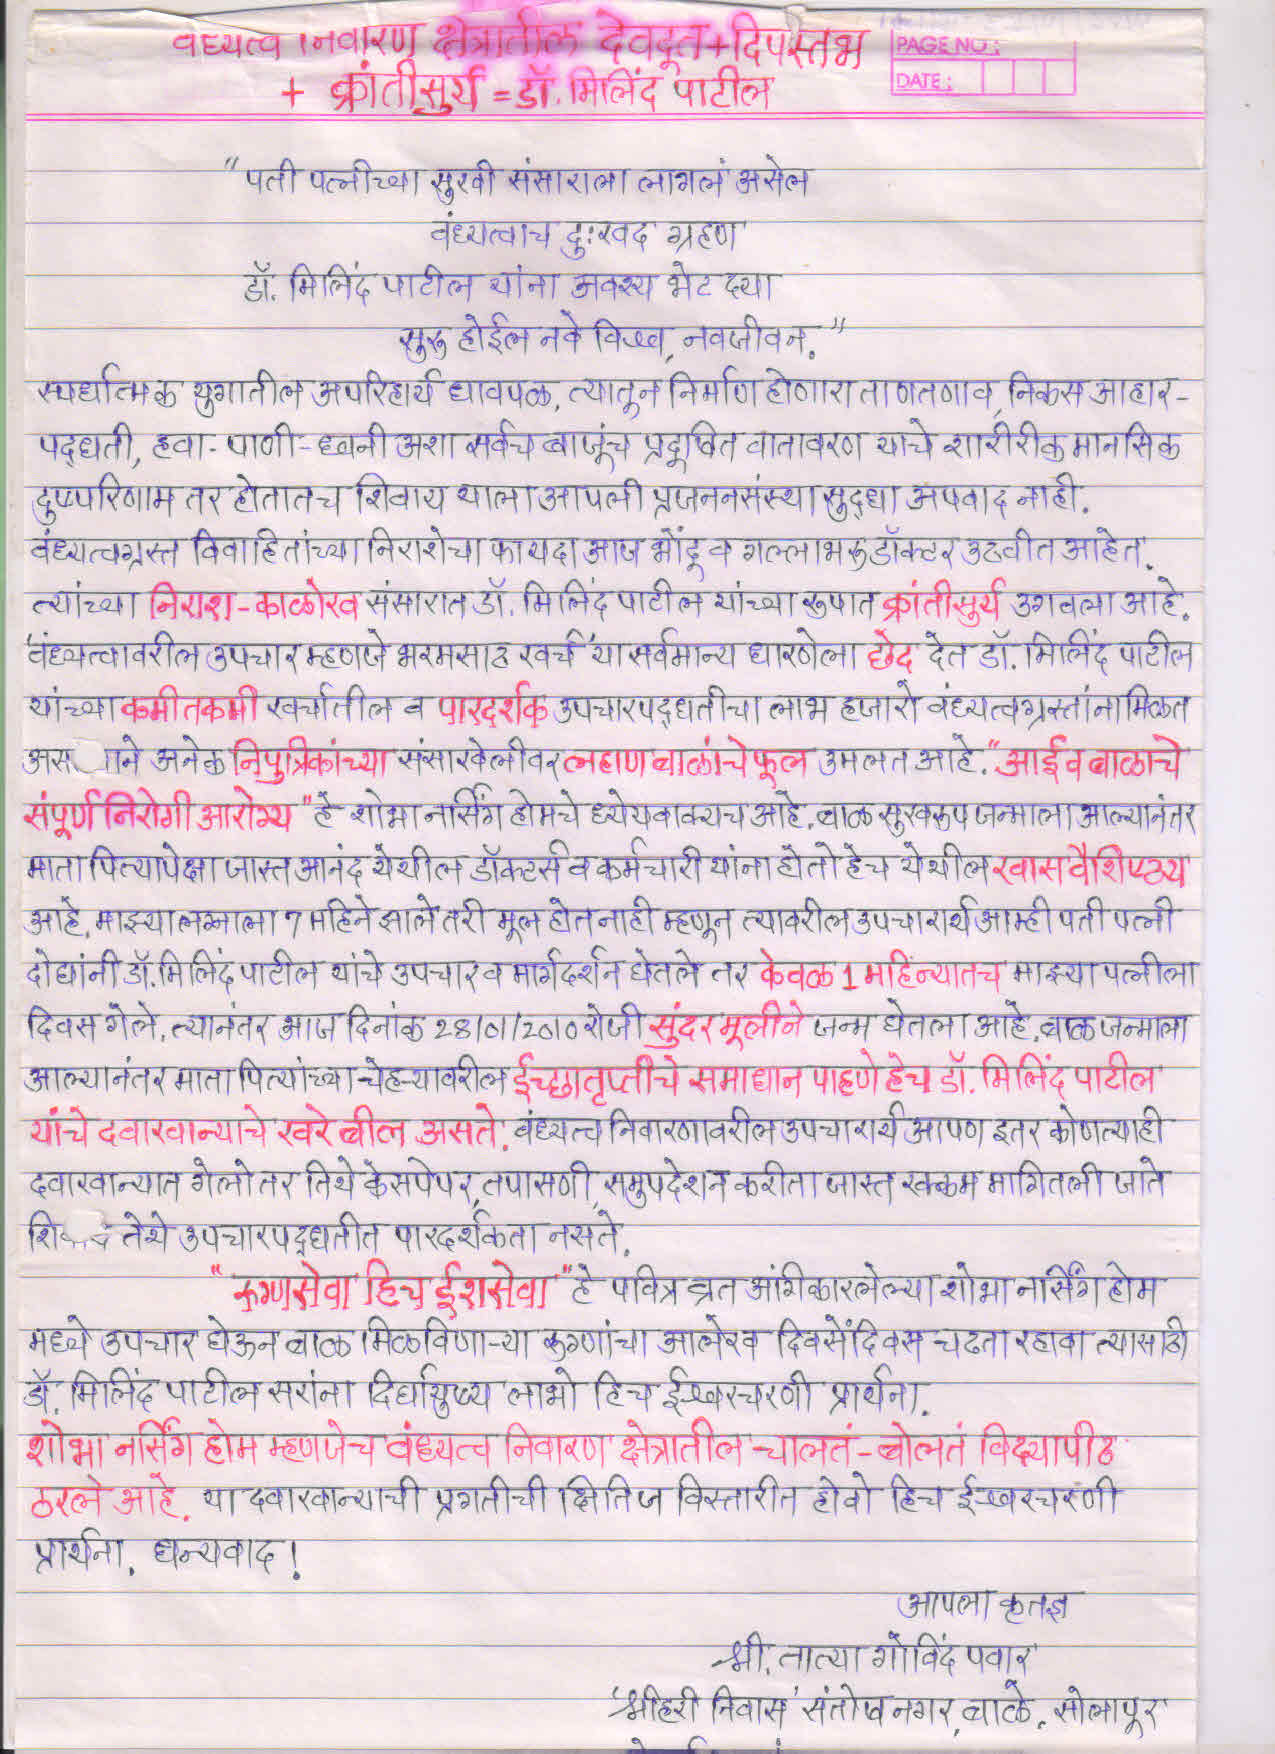 वंध्यत्व निवारण क्षेत्रातील देवदूत+दिपस्तंभ
PAGE NO.:
+ क्रांतीसुर्य = डॉ. मिलिंद पाटील
DATE:
"पती पत्नीच्या सुखी संसाराला लागलं असेल
वंध्यत्वाच दुःखद ग्रहण
डॉ. मिलिंद पाटील यांना अवश्य भेट दया
सुरु होईल नवे विश्व, नवजीवन."
स्पर्धात्मक युगातील अपरिहार्य धावपळ, त्यातून निर्माण होणारा ताणतणाव, निकस आहार-
पद्धती, हवा-पाणी-ध्वनी अशा सर्वच बाजूंच प्रदूषित वातावरण याचे शारीरीक मानसिक
दुष्परिणाम तर होतातच शिवाय याला आपली प्रजननसंस्था सुद्धा अपवाद नाही.
वंध्यत्वग्रस्त विवाहितांच्या निराशेचा फायदा आज भोंदू व गल्लाभरु डॉक्टर उठवीत आहेत.
त्यांच्या निराश-काळोख संसारात डॉ. मिलिंद पाटील यांच्या रुपात क्रांतीसुर्य उगवला आहे.
'वंध्यत्वावरील उपचार म्हणजे भरमसाठ खर्च' या सर्वमान्य धारणेला छेद देत डॉ. मिलिंद पाटील
यांच्या कमीतकमी खर्चातील व पारदर्शक उपचारपद्धतीचा लाभ हजारो वंध्यत्वग्रस्तांना मिळत
अनेक निपुत्रिकांच्या संसारवेलीवर लहाण बाळांचे फूल उमलत आहे. "आई व बाळाचे
संपूर्ण निरोगी आरोग्य" हे शोभा नर्सिंग होमचे ध्येयवाक्यच आहे. बाळ सुखरुप जन्माला आल्यानंतर
माता पित्यापेक्षा जास्त आनंद येथील डॉक्टर्स व कर्मचारी यांना होतो हेच येथील खास वैशिष्ट्य
आहे. माझ्या लग्नाला 7 महिने झाले तरी मूल होत नाही म्हणून त्यावरील उपचारार्थ आम्ही पती पत्नी
दोघांनी डॉ. मिलिंद पाटील यांचे उपचार व मार्गदर्शन घेतले तर केवळ 1 महिन्यातच माझ्या पत्नीला
दिवस गेले. त्यानंतर आज दिनांक 28/01/2010 रोजी सुंदर मूलीने जन्म घेतला आहे. बाळ जन्माला
आल्यानंतर माता पित्यांच्या चेहऱ्यावरील ईच्छातृप्तीचे समाधान पाहणे हेच डॉ. मिलिंद पाटील
यांचे दवाखान्याचे खरे बील असते. वंध्यत्व निवारणावरील उपचारार्थ आपण इतर कोणत्याही
दवाखान्यात गेलो तर तिथे केसपेपर, तपासणी, समुपदेशन करीता जास्त रक्कम मागितली जाते
तेथे उपचारपद्धतीत पारदर्शकता नसते.
"रुग्णसेवा हिच ईशसेवा" हे पवित्र व्रत अंगिकारलेल्या शोभा नर्सिंग होम
मध्ये उपचार घेऊन बाळ मिळविणाऱ्या रुग्णांचा आलेख दिवसेंदिवस चढता रहावा त्यासाठी
डॉ. मिलिंद पाटील सरांना दिर्घायुष्य लाभो हिच ईश्वरचरणी प्रार्थना.
शोभा नर्सिंग होम म्हणजेच वंध्यत्व निवारण क्षेत्रातील चालतं-बोलतं विद्यापीठ
ठरले आहे. या दवाखान्याची प्रगतीची क्षितिज विस्तारीत होवो हिच ईश्वरचरणी
प्रार्थना. धन्यवाद!
आपला कृतज्ञ
श्री. तात्या गोविंद पवार
'श्रीहरी निवास' संतोष नगर, बाळे. सोलापूर